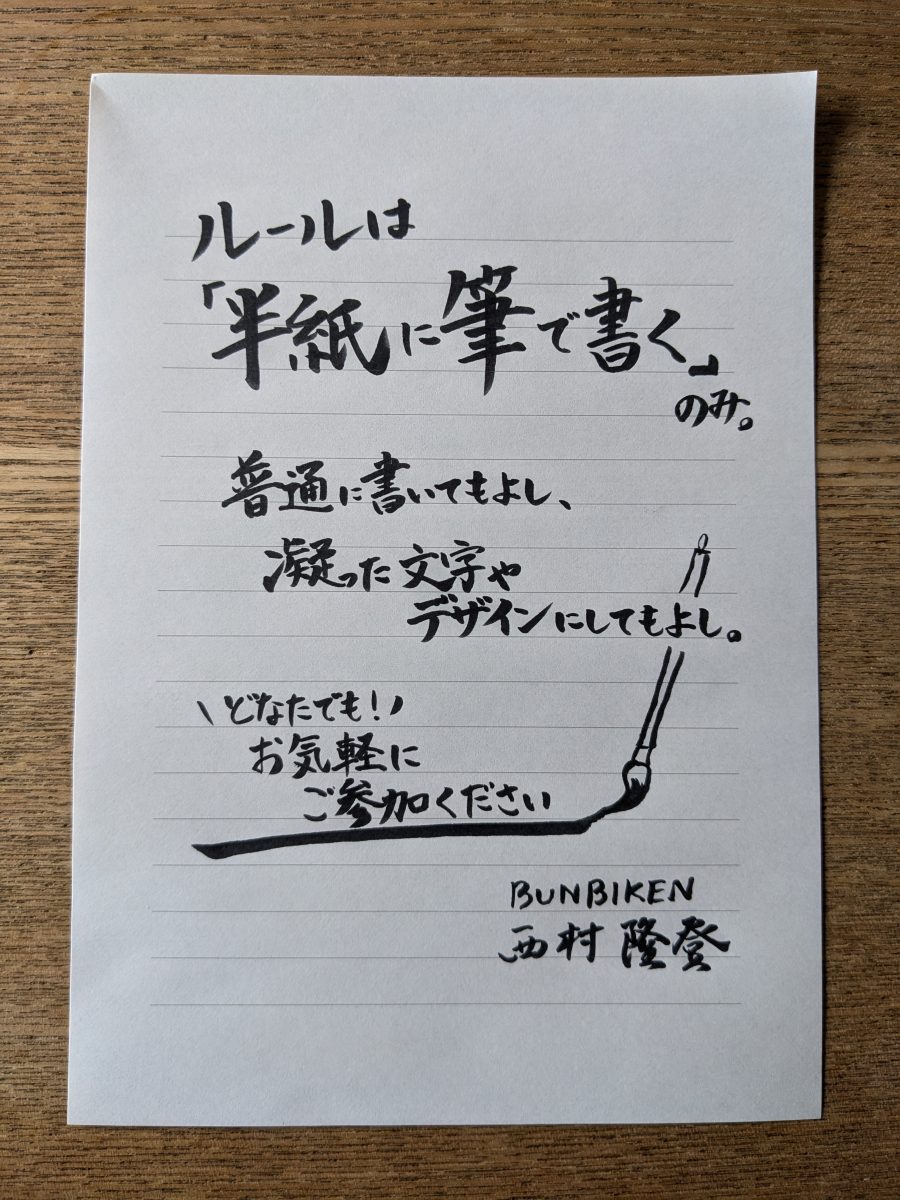 ルールは
「半紙に筆で書く」
のみ。
普通に書いてもよし、
凝った文字や
デザインにしてもよし。
\どなたでも!/
お気軽に
ご参加ください
BUNBIKEN
西村 隆登